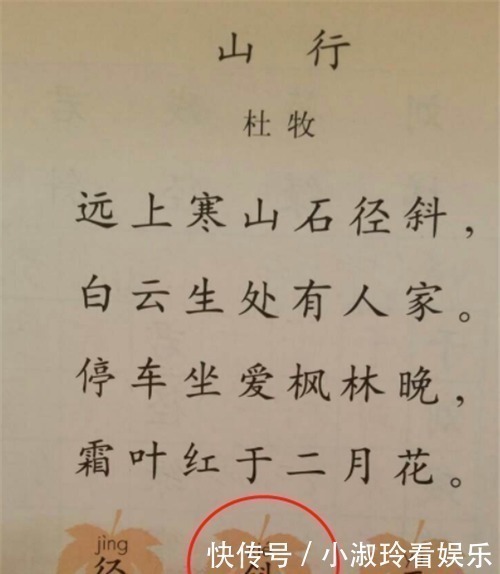 山 行
杜牧
远上寒山石径斜，
白云生处有人家。
停车坐爱枫林晚，
霜叶红于二月花。
jìng
径 斜
快传号 / 小淑玲看娱乐